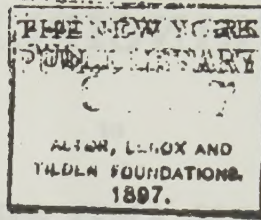 THE NEW YORK
PUBLIC LIBRARY
ASTOR, LENOX AND
TILDEN FOUNDATIONS.
1897.